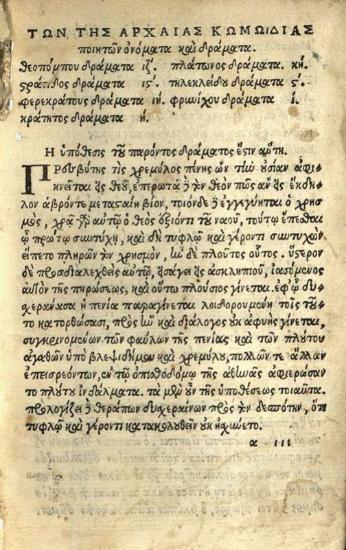 ΤΩΝ ΤΗΣ ΑΡΧΑΙΑΣ ΚΩΜΩΙΔΙΑΣ
ποιητῶν ὀνόματα καὶ δράματα.
Θεοπόμπου δράματα ιζ΄. πλάτωνος δράματα. κη΄.
στράτιδος δράματα ιϛ΄. τηλεκλείδου δράματα ϛ΄.
φερεκράτους δράματα ιη΄. φρυνίχου δράματα ι΄.
κράτητος δράματα η΄.
Ἡ ὑπόθεσις τοῦ παρόντος δράματος ἔστιν αὕτη.
Πρεσβύτης τὶς χρεμύλος πένης ὢν τὴν οὐσίαν ἀφι
κνεῖται εἰς θεοῦ, ἐπερωτᾷ δὲ τὸν θεὸν πῶς ἂν εἰς
μετασταίη βίον, ὁ χρησ
μὸς, χρᾷ γὰρ αὐτῷ ὁ θεὸς ἐξιόντι τοῦ ναοῦ, τούτῳ ἕπεσθαι
ᾧ πρώτῳ συντύχῃ, καὶ δὴ τυφλῷ καὶ γέροντι συντυχὼν
εἵπετο πληρῶν τὸν χρησμὸν, ἦν δὲ πλοῦτος οὗτος. ὕστερον
δὲ προσδιαλεχθεὶς αὐτῷ, εἰσάγει εἰς ἀσκληπιοῦ, ἰασόμενος
αὐτὸν τῆς πηρώσεως, καὶ οὕτω πλούσιος γίνεται. ἐφ᾽ ᾧ δυ
σχεράνασα ἡ πενία παραγίνεται λοιδορουμένη τοῖς τοῦ
το κατορθώσασι, πρὸς ἣν καὶ διάλογος οὐκ ἀφυὴς γίνεται,
συγκρινομένων τῶν φαύλων τῆς πενίας καὶ τῶν τοῦ πλούτου
ἀγαθῶν ὑπὸ βλεψιδήμου καὶ χρεμύλου, πολλῶν τε ἄλλων
ἐπεισρεόντων, ἐν τῷ ὀπισθοδόμῳ τῆς ἀθηνᾶς ἀφιέρωσαν
τὸ πλούτου ἰνδάλματα. τὰ μὲν οὖν τῆς ὑποθέσεως τοιαῦτα.
προλογίζει δὲ θεράπων δυσχεραίνων πρὸς τὸν δεσπότην, ὅτι
τυφλῷ καὶ γέροντι κατακολουθεῖν οὐκ ᾐσχύνετο.
α iii